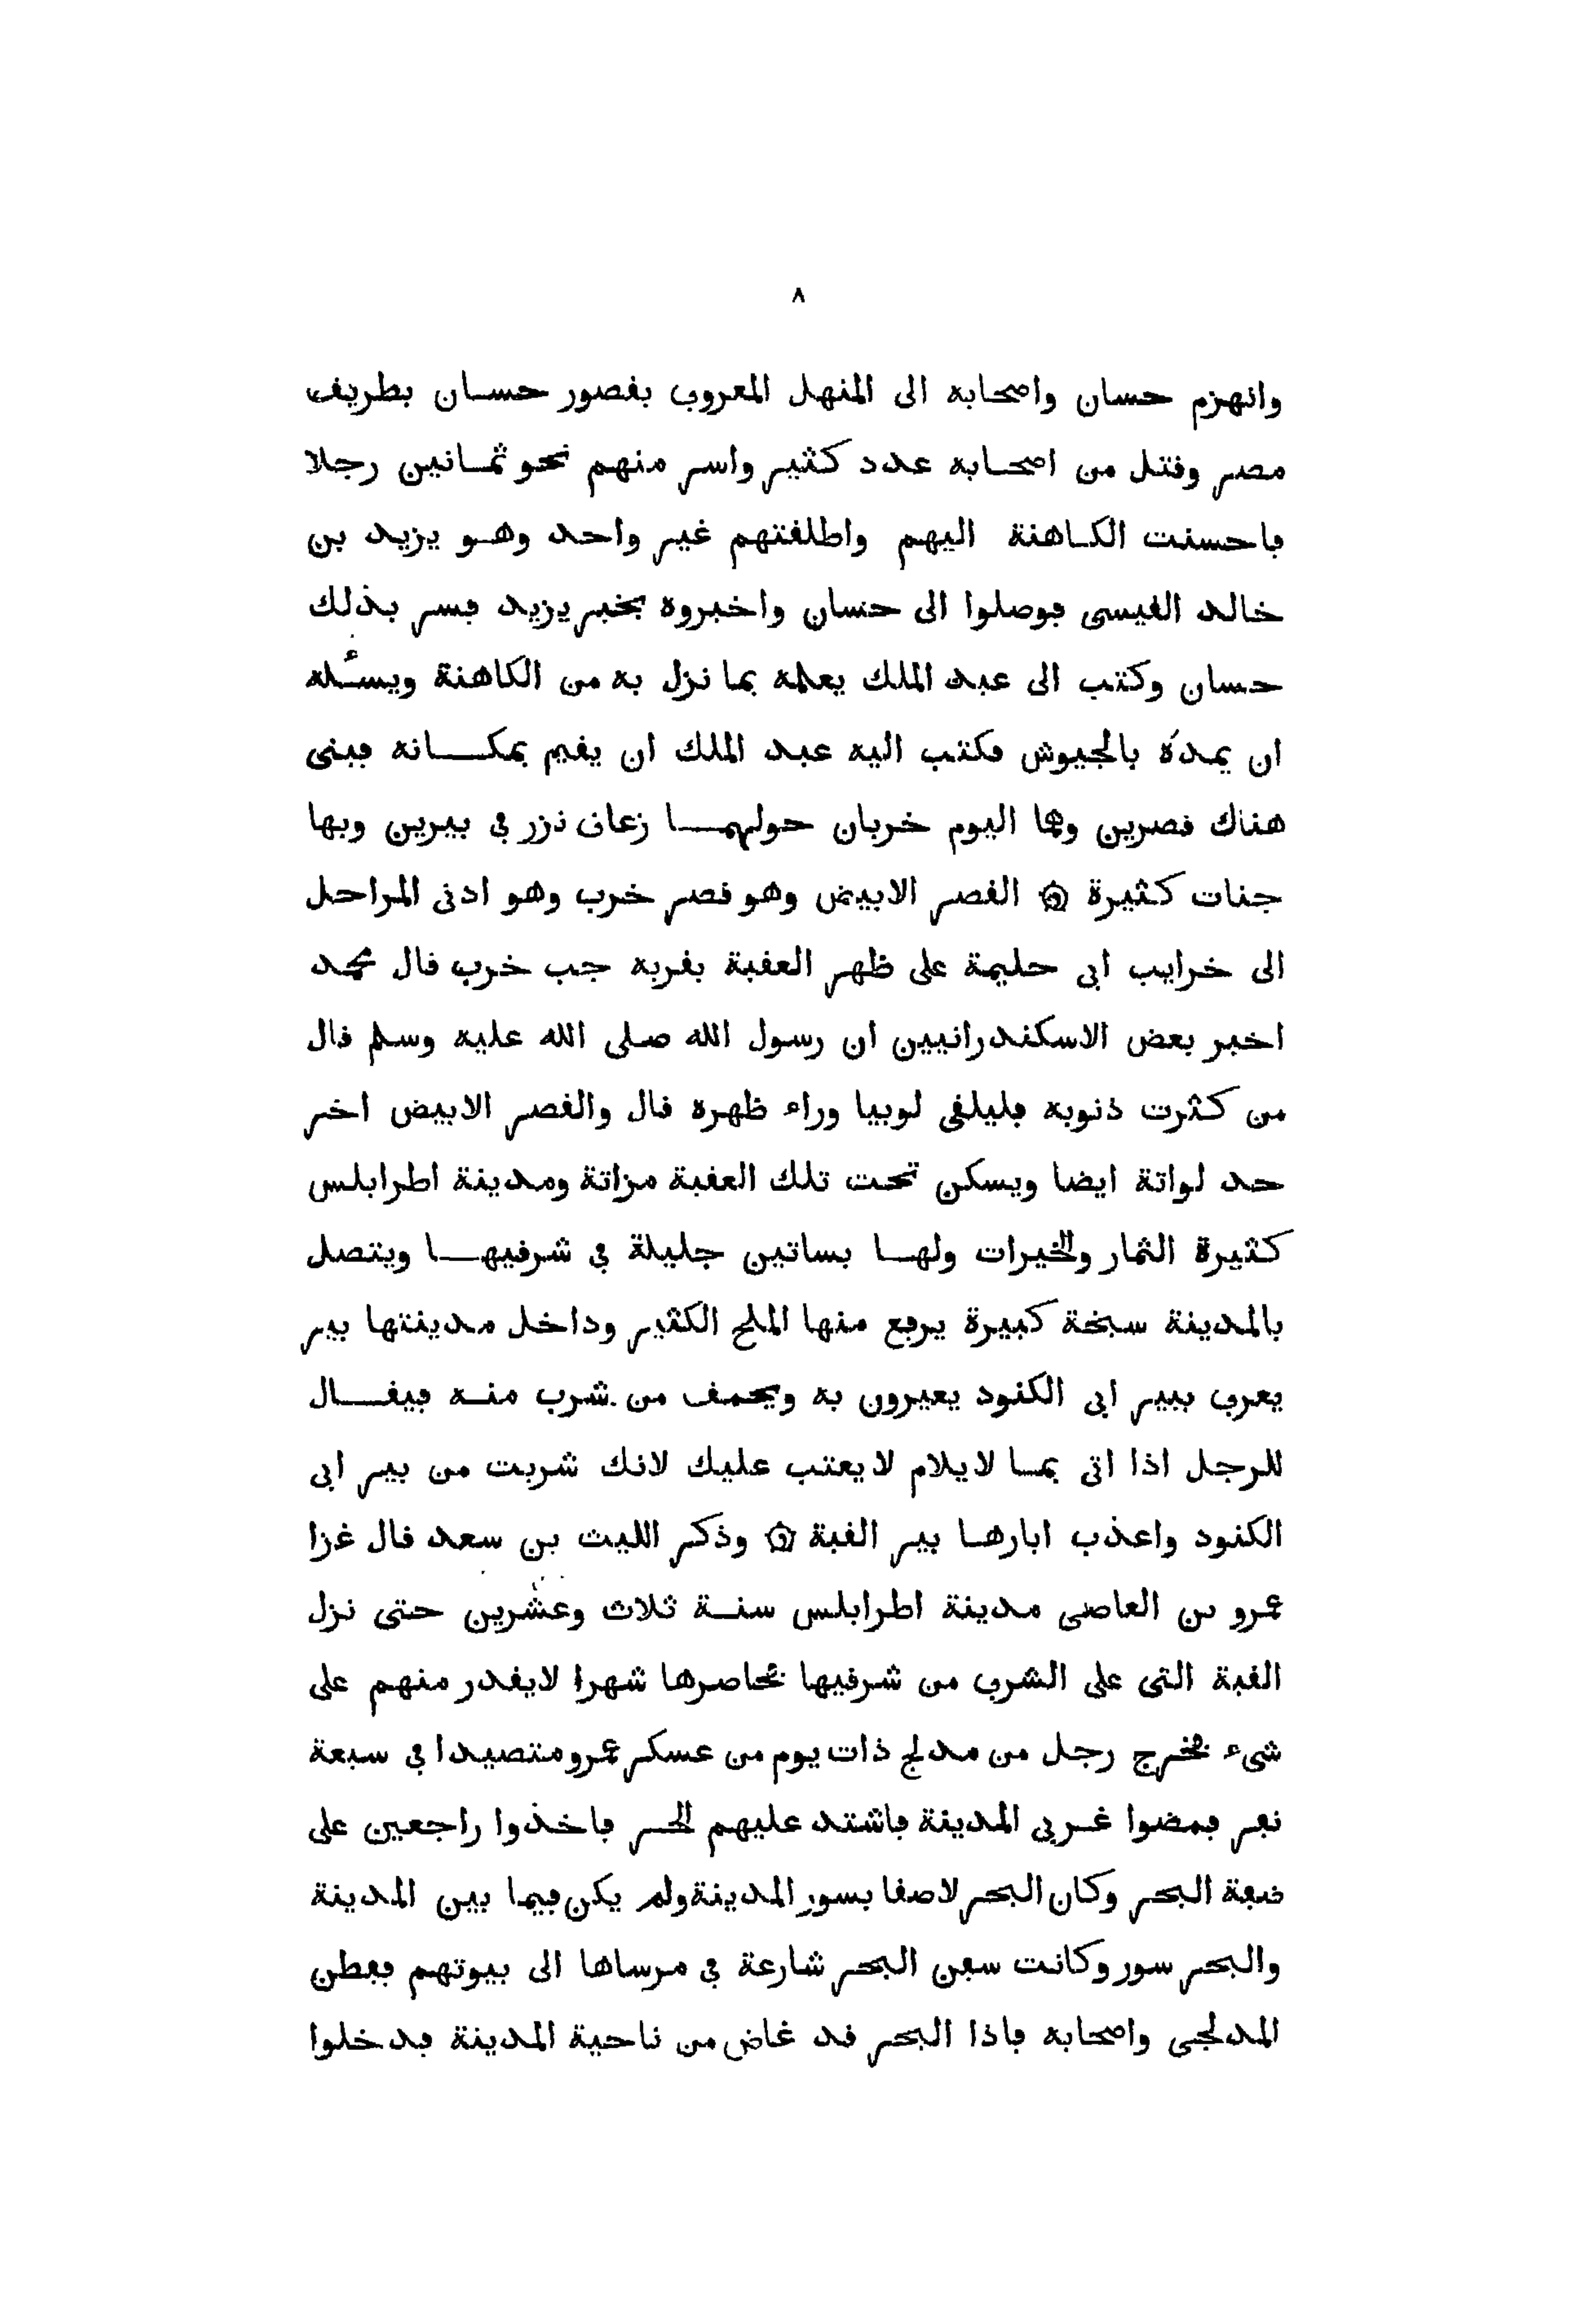 ٨
وانهزم حسان واصحابه الى المنهل المعروف بقصور حسان بطريق
مصر وقتل من اصحابه عدد كثير واسر منهم نحو ثمانين رجلا
فاحسنت الكاهنة اليهم واطلقتهم غير واحد وهو يزيد بن
خالد القيسى فوصلوا الى حسان واخبروه بخبر يزيد فسر بذلك
حسان وكتب الى عبد الملك يعلمه بما نزل به من الكاهنة ويسئله
ان يمدّه بالجيوش فكتب اليه عبد الملك ان يقيم بمكانه فبنى
هناك قصرين وهما اليوم خربان حولهما زعاق نزر في بيرين وبها
جنات كثيرة ۞ القصر الابيض وهو قصر خرب وهو ادنى المراحل
الى خرايب ابى حليمة على ظهر العقبة بقربه جب خرب قال محمد
اخبر بعض الاسكندرانيين ان رسول الله صلى الله عليه وسلم قال
من كثرت ذنوبه فليلقى لوبيا وراء ظهره قال والقصر الابيض اخر
حد لواتة ايضا ويسكن تحت تلك العقبة مزاتة ومدينة اطرابلس
كثيرة الثمار والخيرات ولها بساتين جليلة في شرقيها ويتصل
بالمدينة سبخة كبيرة يرفع منها الملح الكثير وداخل مدينتها بير
يعرف ببير ابى الكنود يعيرون به ويحمق من شرب منه فيقال
للرجل اذا اتى بما لا يلام لا يعتب عليك لانك شربت من بير ابى
الكنود واعذب ابارها بير القبة ۞ وذكر الليث بن سعد قال غزا
عمرو بن العاصى مدينة اطرابلس سنة ثلاث وعشرين حتى نزل
القبة التى على الشرف من شرقيها فحاصرها شهرا لا يقدر منهم على
شىء فخرج رجل من مدلج ذات يوم من عسكر عمرو متصيدا في سبعة
نفر فمضوا غربى المدينة فاشتد عليهم الحر فاخذوا راجعين على
ضفة البحر وكان البحر لاصقا بسور المدينة ولم يكن فيما بين المدينة
والبحر سور وكانت سفن البحر شارعة في مرساها الى بيوتهم ففطن
المدلجى واصحابه فاذا البحر قد غاض من ناحية المدينة فدخلوا